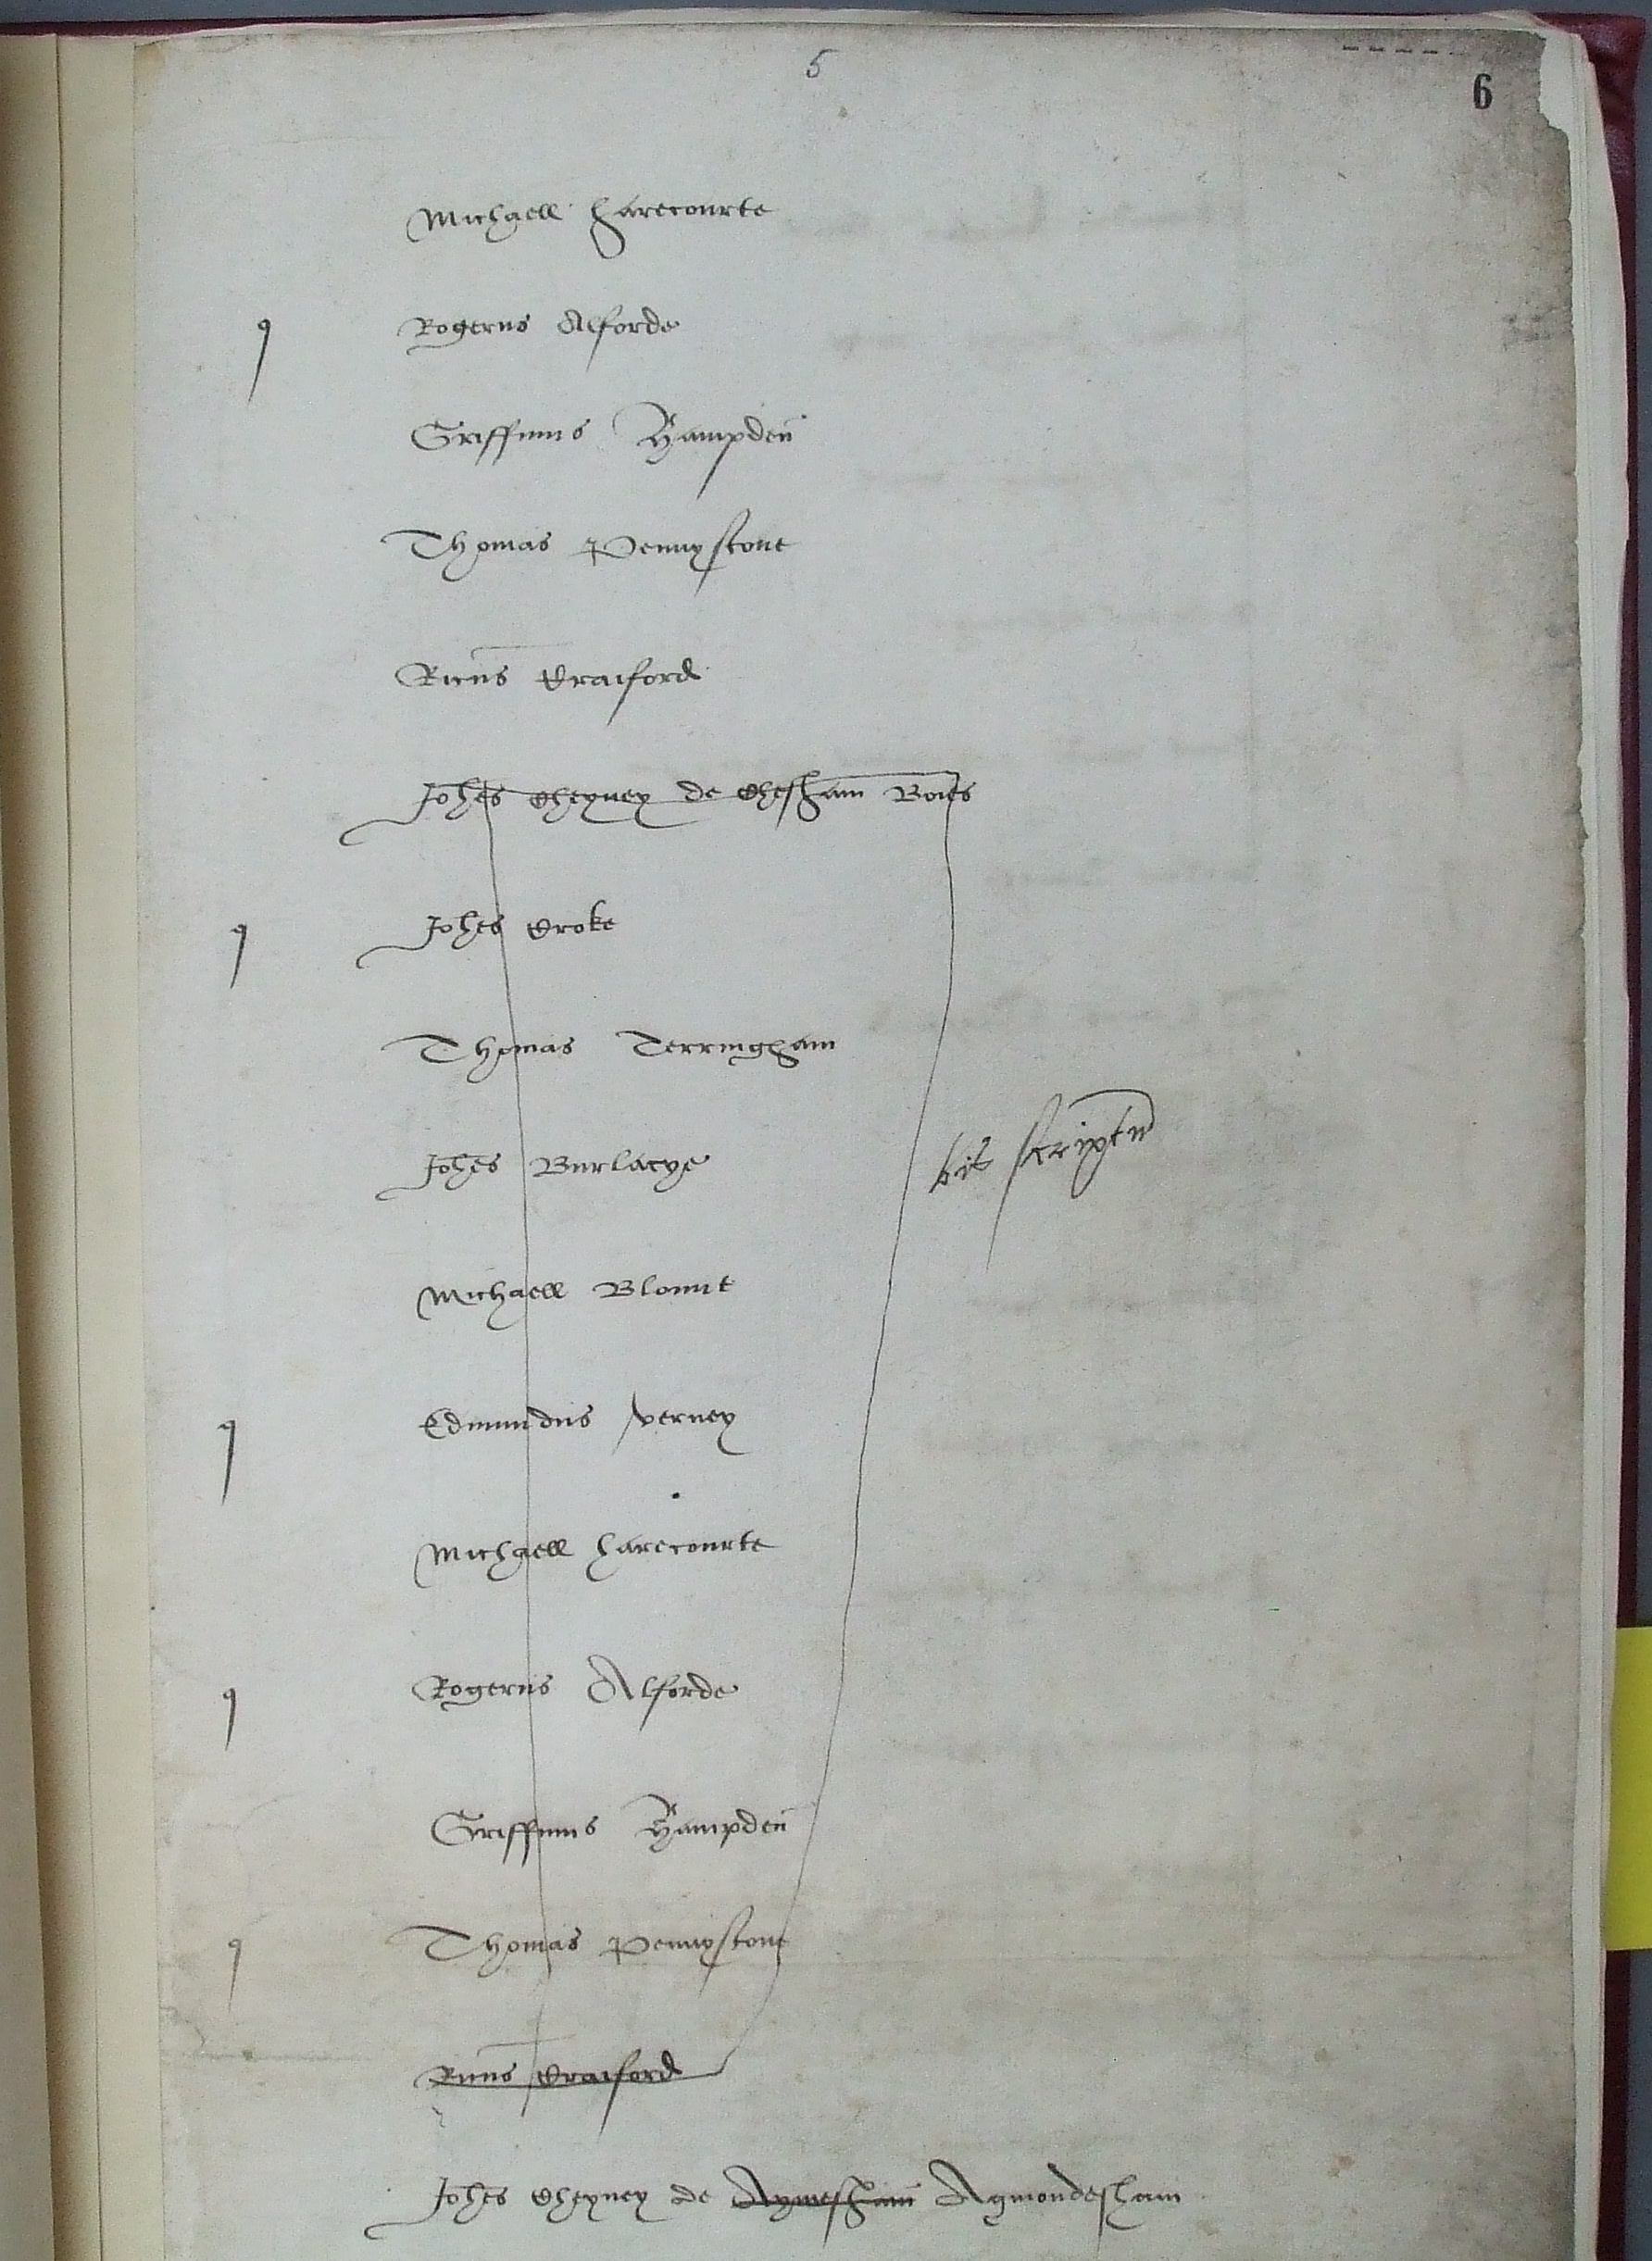 5
6
Michaell harecourte
q Rogerus Alforde
Griffinus Hampden
Thomas Pennystone
Ricus Craiford
Johes Cheyney de Chesham Boies
q Johes Croke
Thomas Terringham
Johes Burlacye
bis scriptu
Michaell Blount
q Edmundus Verney
Michaell harecourte
q Rogerus Alforde
Griffinus Hampden
q Thomas Pennystone
Ricus Craiford
Johes Cheyney de Aymesham Agmondesham